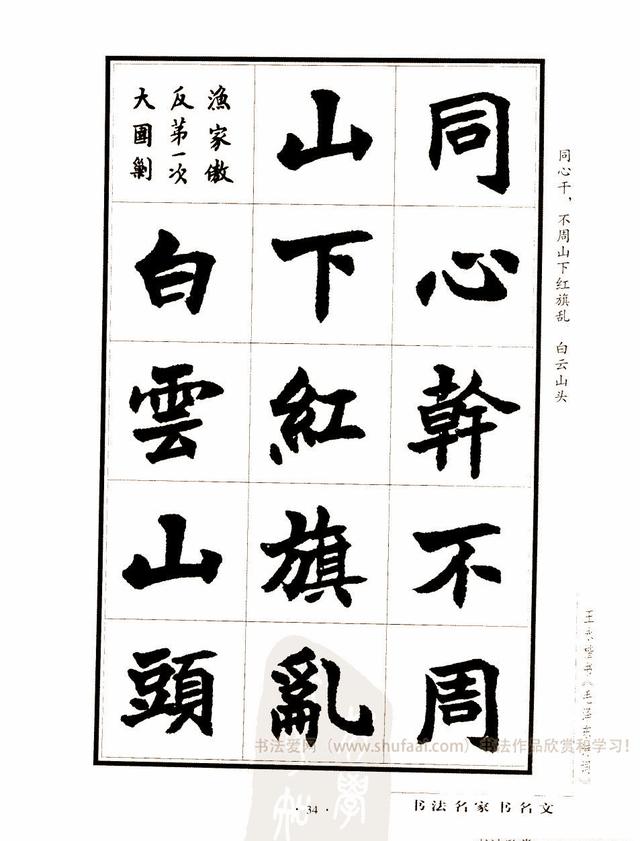 同心幹不周
山下紅旗亂
漁家傲
反第一次
大圍剿
白雲山頭
同心干，不周山下红旗乱 白云山头
书法爱网（www.shufaai.com）书法作品欣赏和学习！
· 34 ·
书法名家书名文